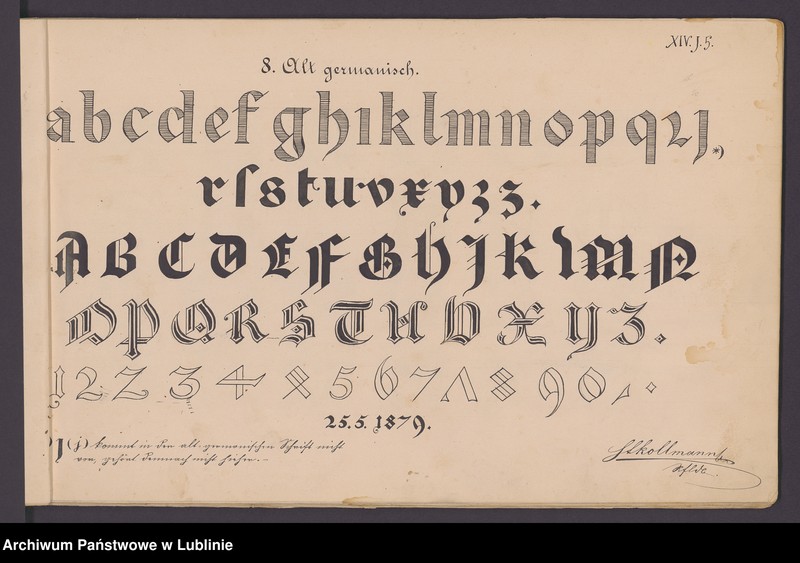 XIV. J. 5.
8. Alt germanisch.
a b c d e f g h ı k l m n o p q ꝛ J. *)
r ſ s t u v x y z z.
A B C D E F G H J K L M N
O P Q R S T U V X Y Z.
1 2 Z 3 4 8 5 6 7 Λ 8 9 0 , .
25. 5. 1879.
*) J (j) kommt in der alt-germanischen Schrift nicht
vor, gehört demnach nicht hierher. –
Kollmann
Archiwum Państwowe w Lublinie